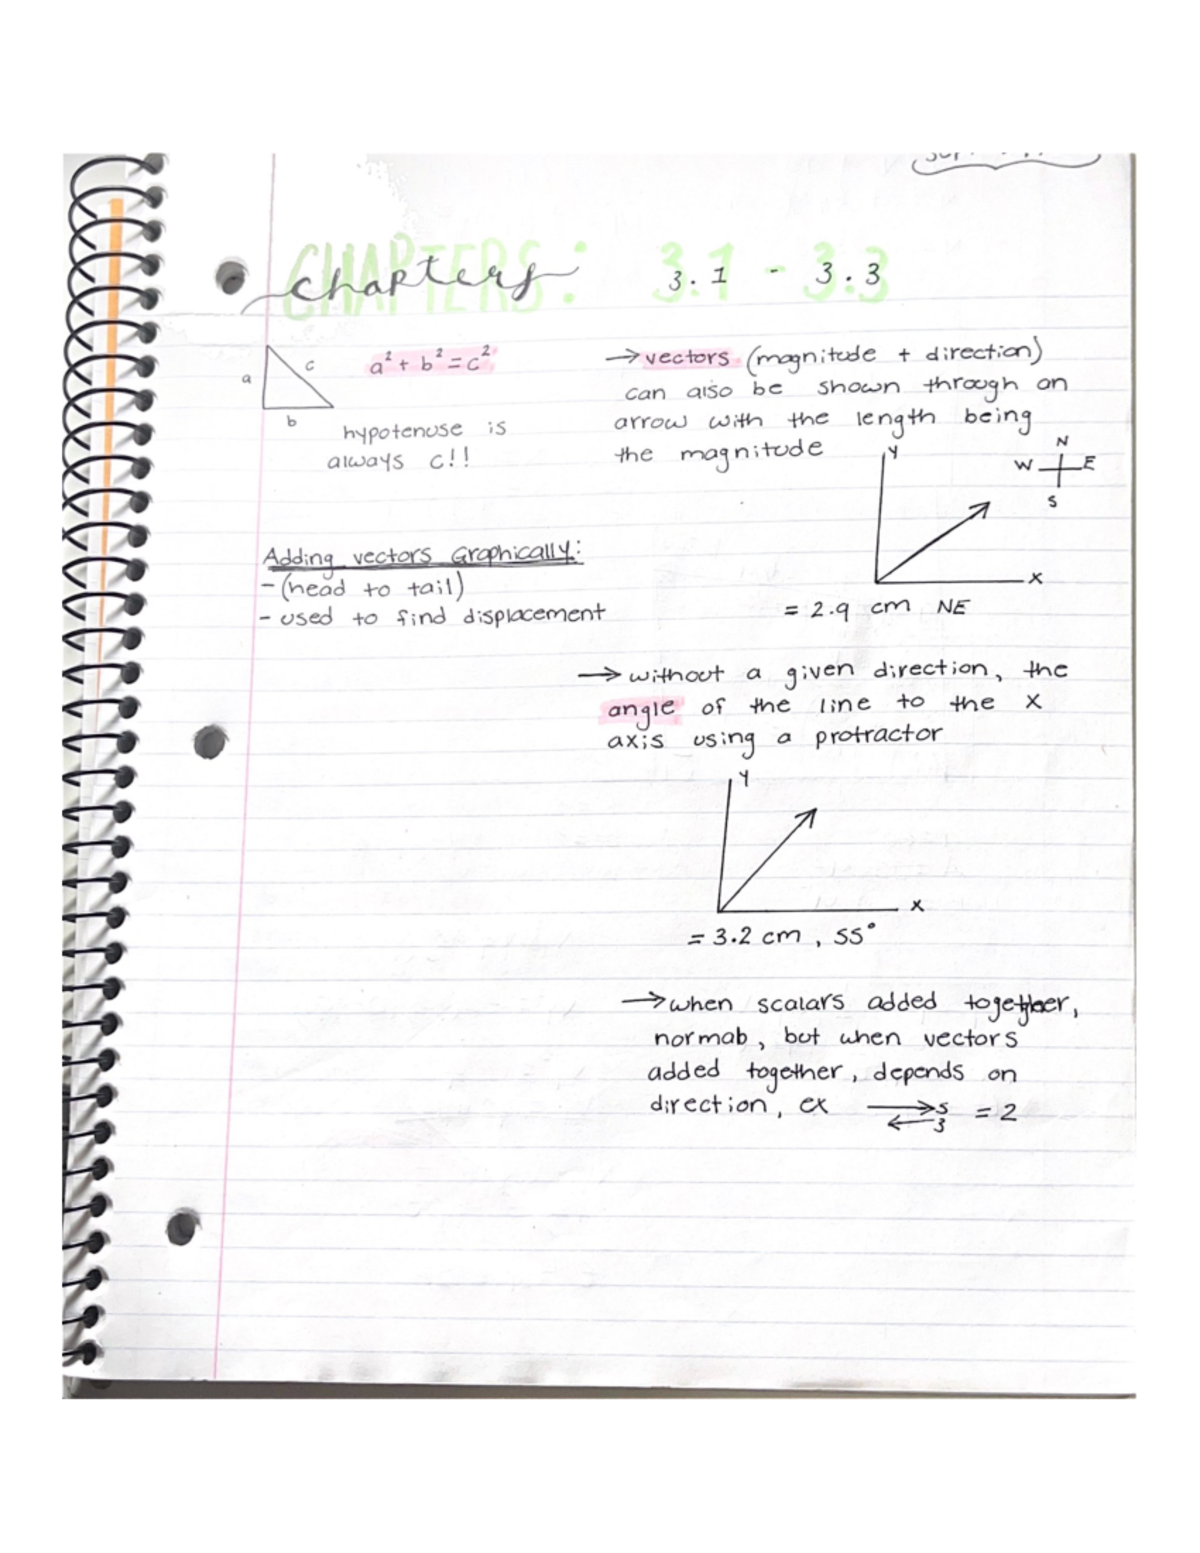 CHAPTERS: 3.1 - 3.3
chapters 3.1 - 3.3
a
c
b
a² + b² = c²
hypotenuse is
always c!!
Adding vectors Graphically:
- (head to tail)
- used to find displacement
→ vectors (magnitude + direction)
can also be shown through an
arrow with the length being
the magnitude
N
W E
S
Y
X
= 2.9 cm NE
→ without a given direction, the
angle of the line to the x
axis using a protractor
Y
X
= 3.2 cm, 55°
→ when scalars added together,
normab, but when vectors
added together, depends on
direction, ex 5 = 2
3